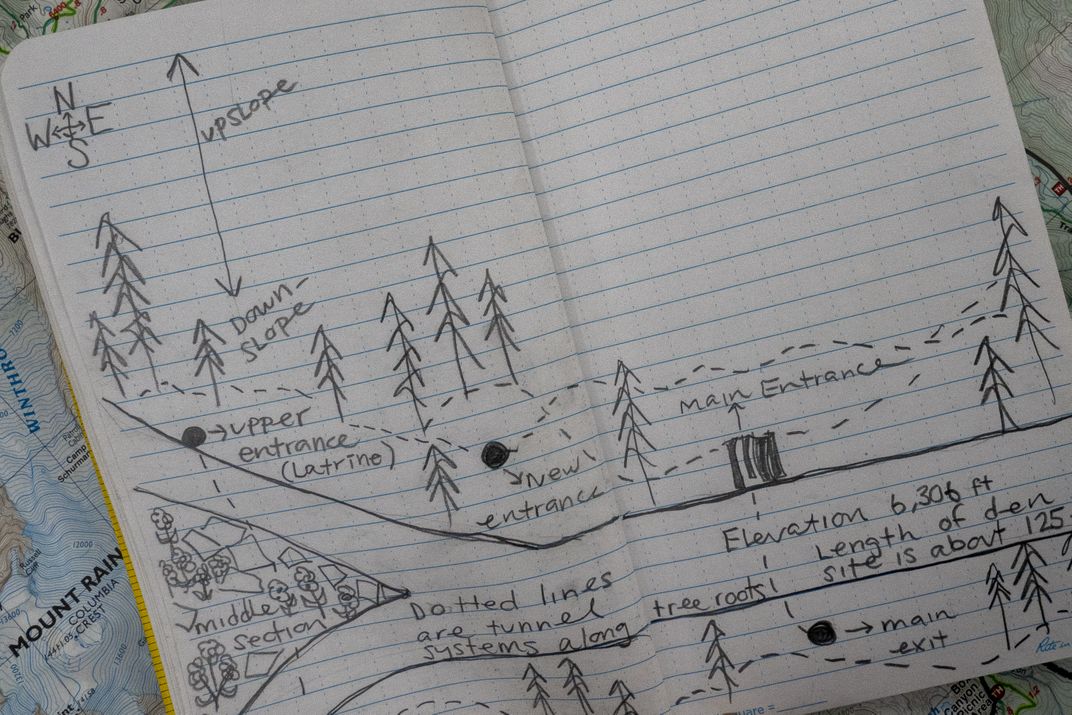 N
W E
S
upslope
Down-
slope
→upper
entrance
(Latrine)
New
entrance
main Entrance
Elevation 6,306 ft
Length of den
site is about 125
middle
section
Dotted lines
are tunnel
systems along
tree roots
→main
exit
WINTHRO
MOUNT RAIN
COLUMBIA
CREST
12000